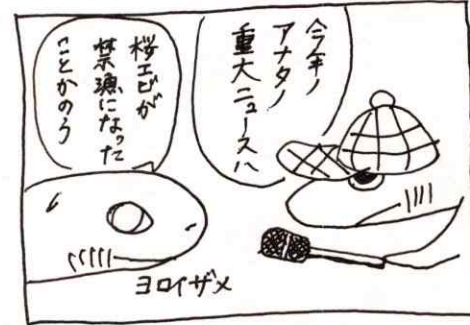 今年ノ
アナタノ
重大ニュースハ
桜エビが
禁漁になった
ことかのう
ヨロイザメ